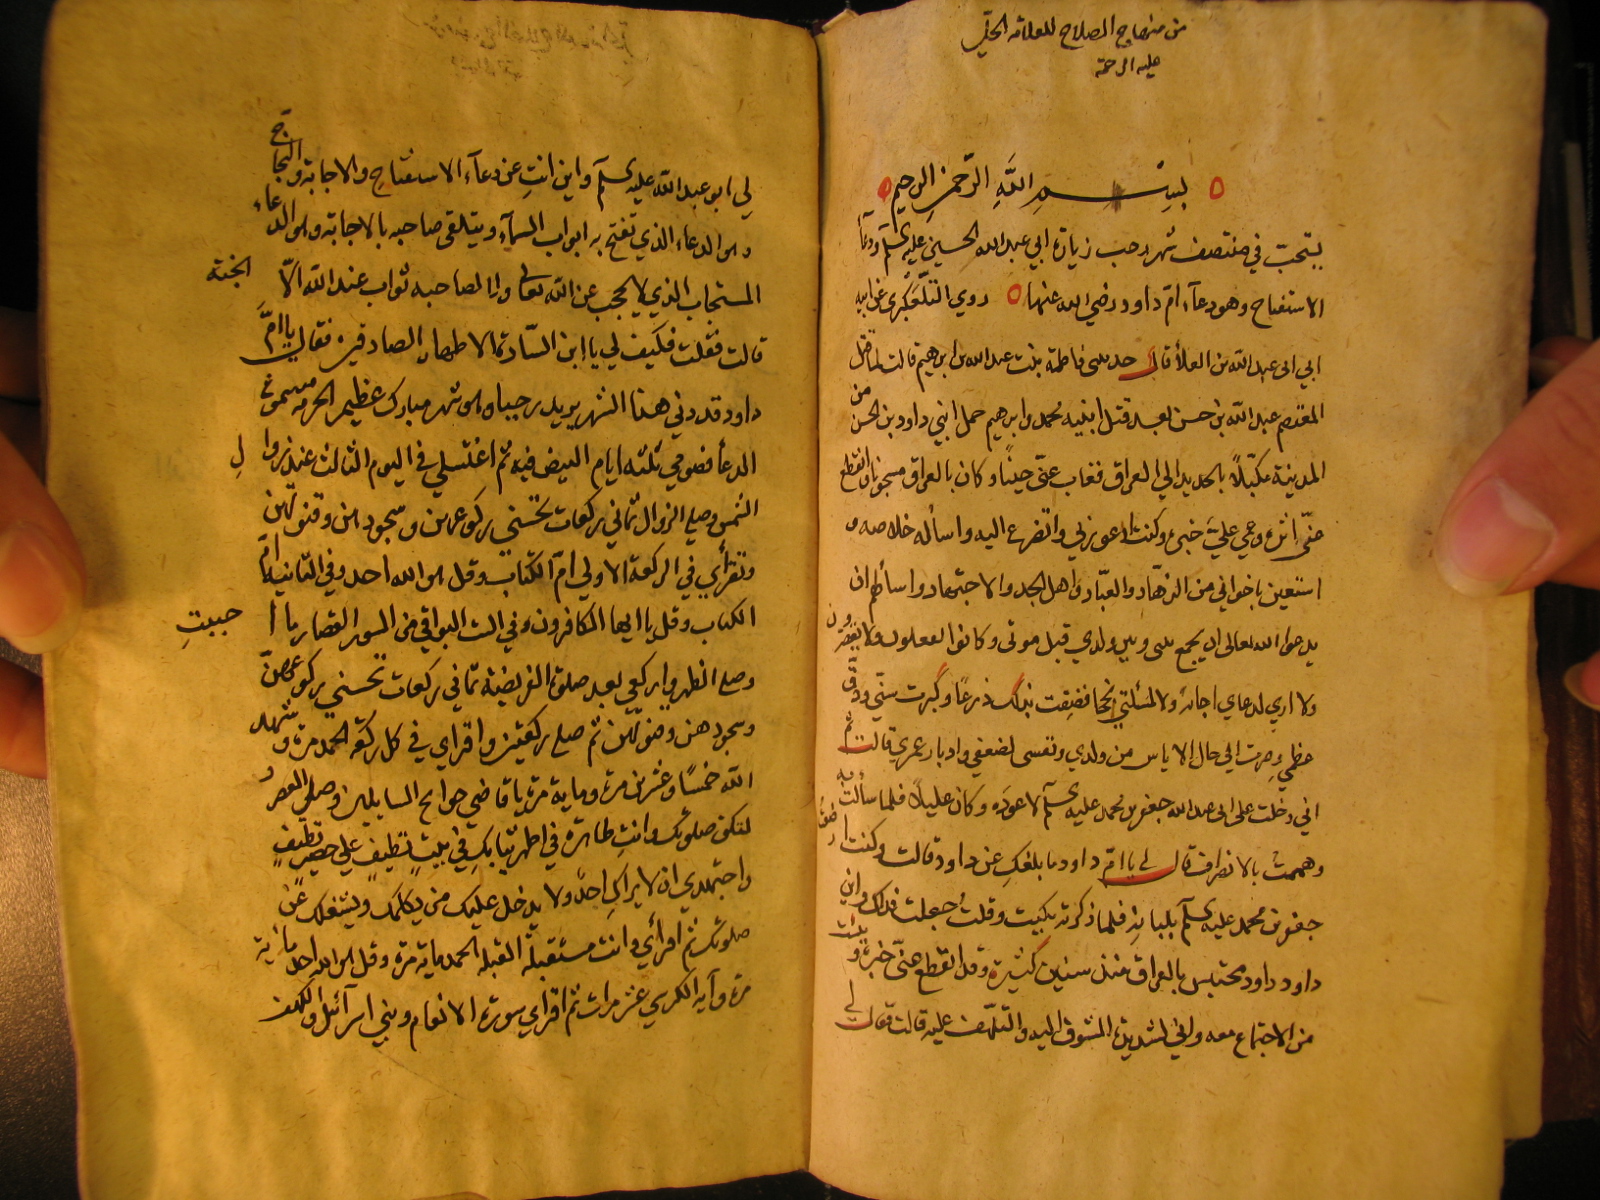 من منهاج الصلاح للعلامه الحلي
عليه الرحمة
بسم الله الرحمن الرحيم
يستحب في منتصف شهر رجب زيارة ابي عبد الله الحسين عليه السلام ودعاء
الاستفتاح وهو دعاء ام داود رضي الله عنها روي التلعكبري عن ابيه
ابي ابى عبد الله بن العلا قال حدثتني فاطمة بنت عبد الله بن ابرهيم قالت لما قتل
المنصور عبد الله بن حسن بعد قتل ابنيه محمد وابرهيم حمل ابني داود بن الحسن من
المدينة مكبلا بالحديد الي العراق فغاب عني حينا وكان بالعراق مسجونا وانقطع
عني اثره وعمي علي خبره وكنت ادعو ربي واتضرع اليه واسأله خلاصه و
استعين باخواني من الزهاد والعباد واهل الجد والاجتهاد واسألهم ان
يدعوا الله تعالى ان يجمع بيني وبين ولدي قبل موتى وكانوا يفعلون ولا يقصرون
ولا اري لدعاي اجابة ولا لمسئلتي نجحا فضقت بذلك ذرعا وكبرت سني ودق
عظمي وصرت الي حال الاياس من ولدي ونفسى لضعفي وادبار عمري قالت ثم
اني دخلت على ابى عبد الله جعفر بن محمد عليه السلام لاعوده وكان عليلا فلما سألت به
وهممت بالانصراف قال لي يا ام داود ما بلغك عن داود قالت وكنت ارضعت
جعفر بن محمد عليه السلام بلبانه فلما ذكره بكيت وقلت جعلت فداك واين
داود داود محتبس بالعراق منذ سنين كثيرة وقد انقطع عني خبره ويئست
من الاجتماع معه واني لشديدة الشوق اليه والتلهف عليه قالت فقال لي
لي ابو عبد الله عليه السلام واين انت عن دعاء الاستفتاح والاجابة والنجاح
وهو الدعاء الذي تفتح به ابواب السماء ويتلقى صاحبه بالاجابة وهو الدعاء
المستجاب الذي لا يحجب عن الله تعالى ولا لصاحبه ثواب عند الله الا الجنة
قالت فقلت فكيف لي يا ابن السادة الاطهار الصادقين فقال يا ام
داود قد دنى هذا الشهر يريد رجبا وهو شهر مبارك عظيم الحرمة مسموع
الدعا فصومي ثلثة ايام البيض فيه ثم اغتسلي في اليوم الثالث عند زوال
الشمس وصلي الزوال ثماني ركعات تحسني ركوعهن وسجودهن وقنوتهن
وتقرأي في الركعة الاولي ام الكتاب وقل هو الله احد وفي الثانية ام
الكتاب وقل يا ايها الكافرون وفي الست البواقي من السور القصار ما احببت
وصلي الظهر واركعي بعد صلوة الفريضة ثماني ركعات تحسني ركوعهن
وسجودهن وقنوتهن ثم صلي ركعتين واقراي في كل ركعة الحمد مرة وشهد
الله خمسا وعشرين مرة وماية مرة يا قاضي حوايج السايلين وصلي العصر و
لتكن صلوتك وانت طاهرة في اطهر ثيابك في بيت نظيف علي حصير نظيف
واجتهدي ان لا يراك احد ولا يدخل عليك من يكلمك ويشغلك عن
صلوتك ثم اقرأي وانت مستقبلة القبلة الحمد ماية مرة وقل هو الله احد ماية
مرة وآية الكرسي عشر مرات ثم اقراي سورة الانعام وبني اسرآئيل والكهف